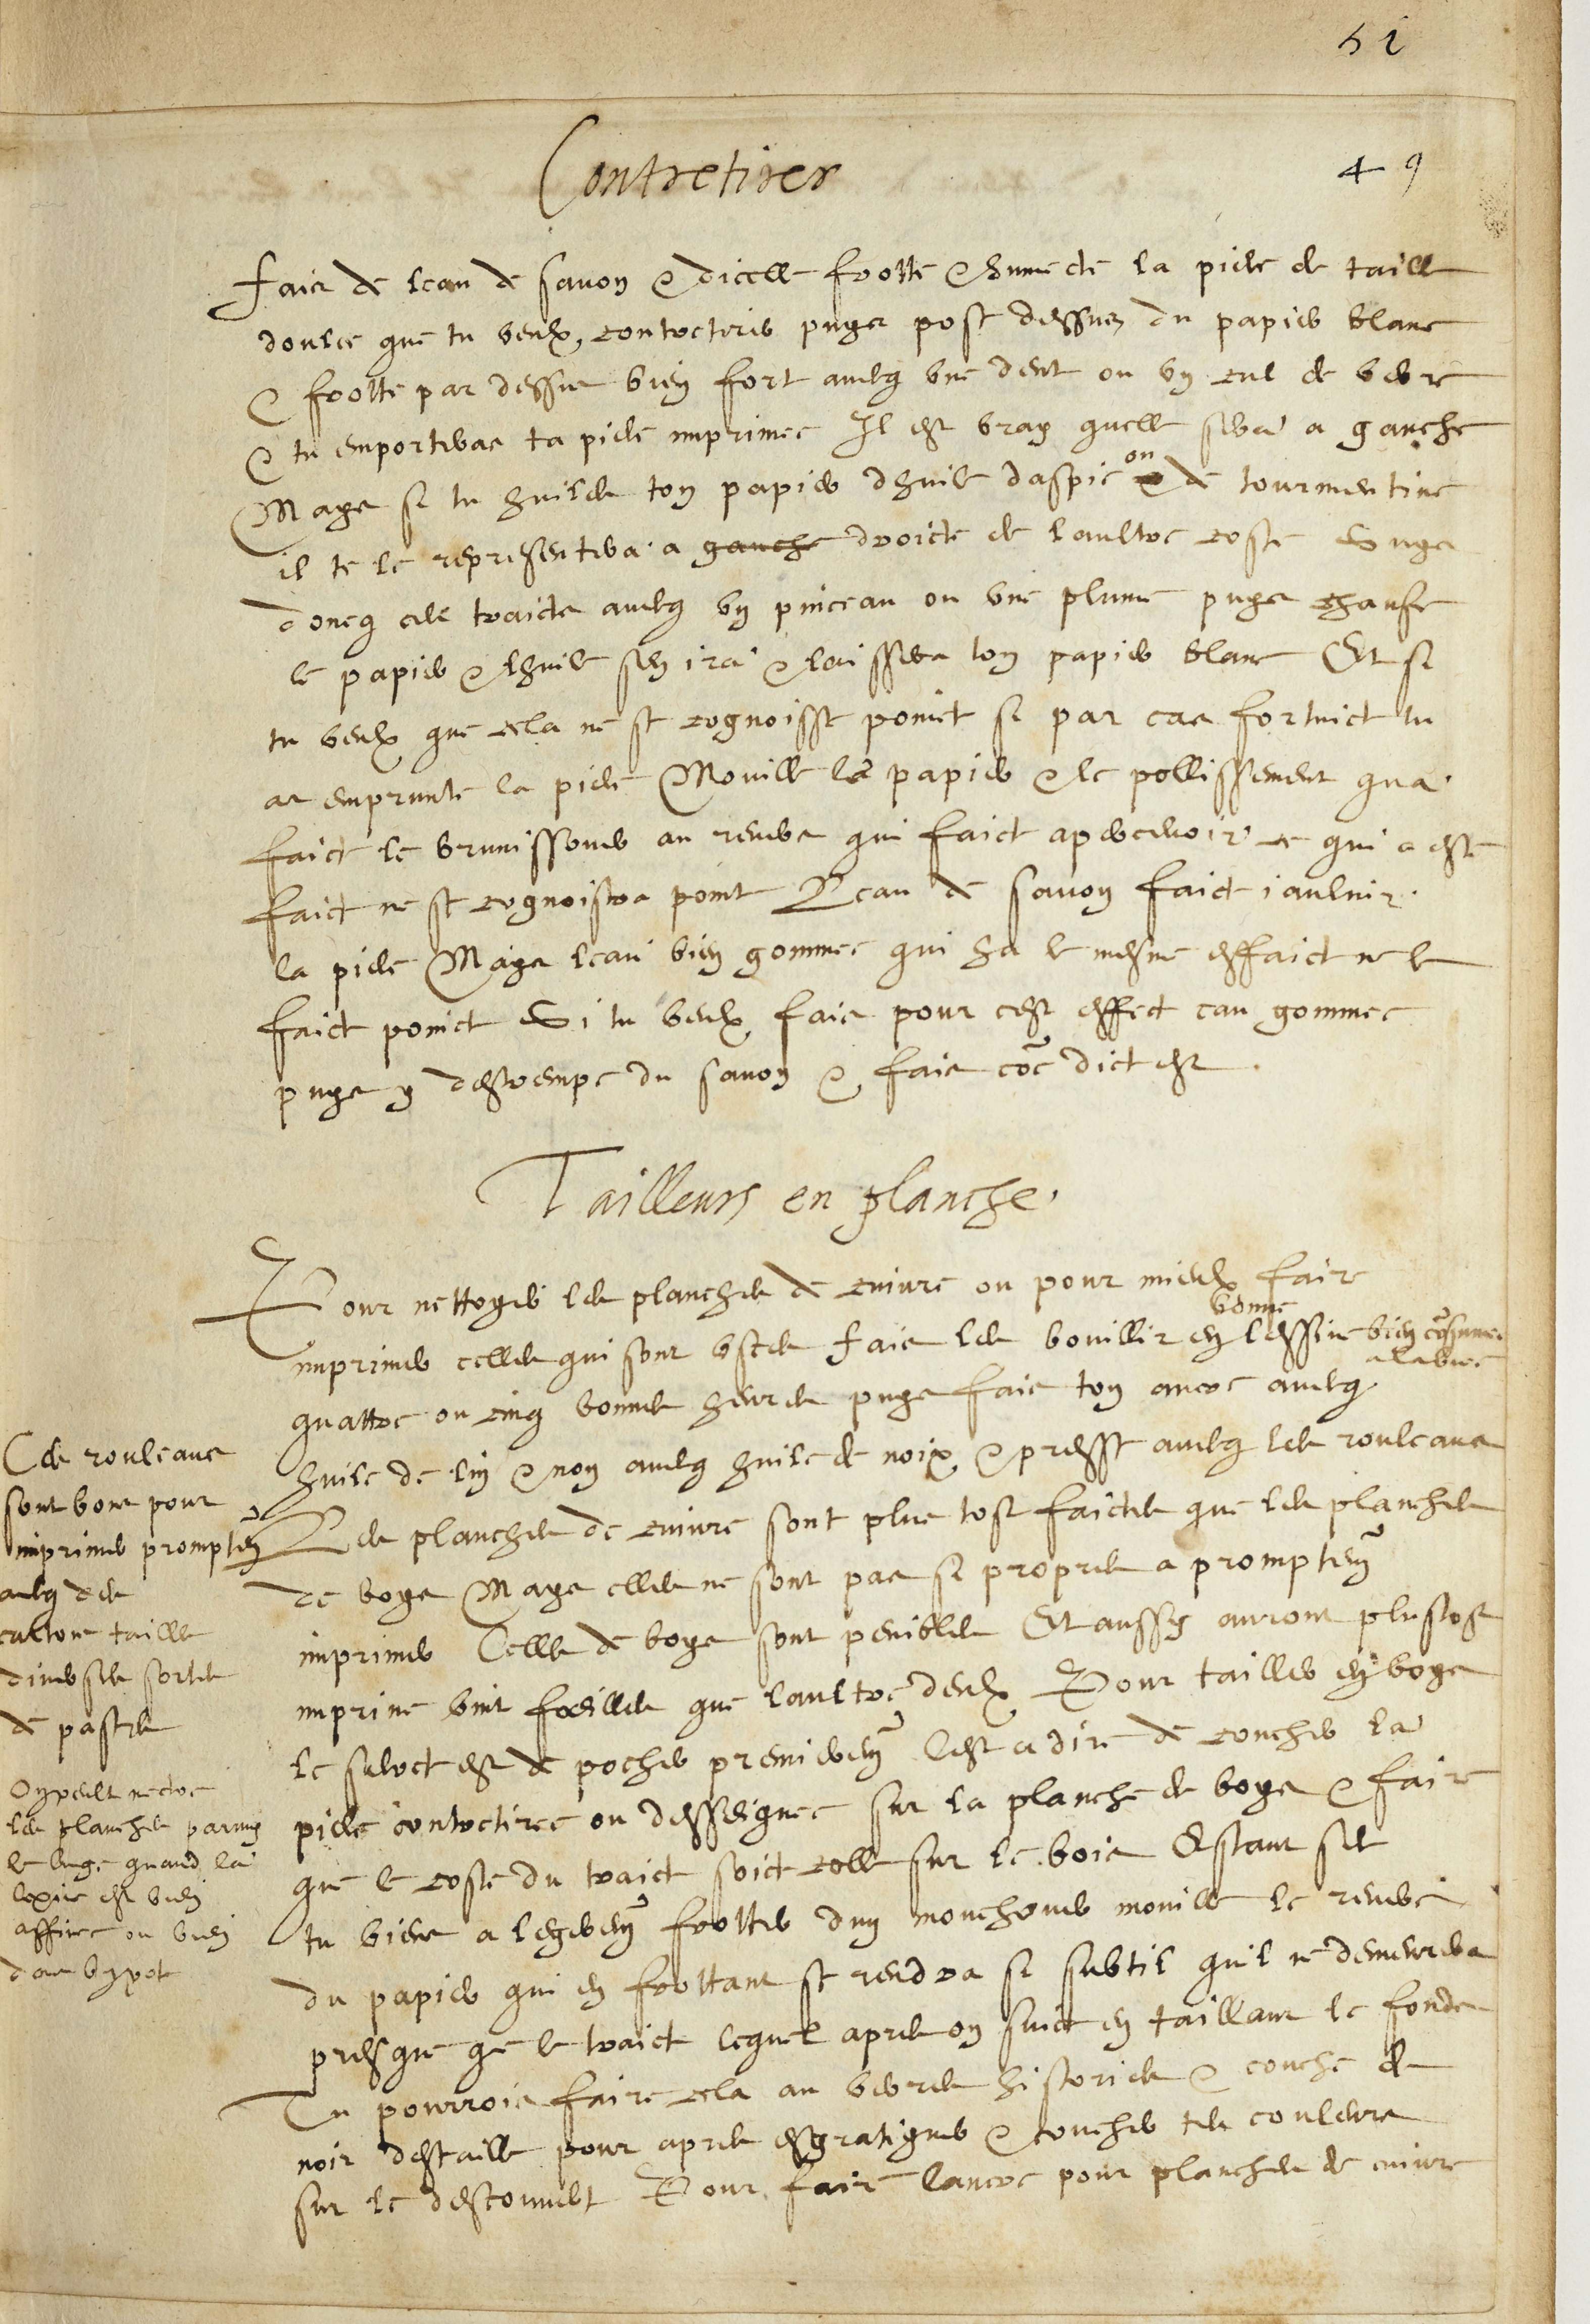 51
49
Contretirer
Fais de leau de savon & dicelle frotte & humecte la piece de taille
doulce que tu veulx contretirer puys pose dessus du papier blanc
& frotte par dessus bien fort aulcq une dent ou un cul de verre
& tu emporteras ta piece imprimee Il est vray quelle sera a gauche
Mays si tu huiles ton papier dhuile daspic ou de tourmentine
il te le representera a gauche droicte de laultre coste Suys
doncq ces traicts avecq un pinceau ou une plume puys chaufe
le papier & lhuile sen ira & laissera ton papier blanc Et si
tu veulx que cela ne se cognoisse poinct si par cas fortuict tu
as emprunte la piece Mouille le papier & le pollissement qua
faict le brunissoir au revers qui faict apercevoir ce qui a este
faict ne se cognoistra point Leau de savon faict jaulnir
la piece Mays leau bien gommee qui ha le mesme effaict ne le
faict poinct Si tu veulx fais pour cest effect eau gommee
puys y destrempe du savon & fais coe dict est
Tailleurs en planche
Pour nettoyer les planches de cuivre ou pour mieulx faire
bonne
imprimer celles qui sont usees fais les bouillir en lessive bien consumee
a la buee
quattre ou cinq bonnes heures puys fais ton ancre avecq
huile de lin & non avecq huile de noix & presse avecq les rouleaus
Les planches de cuivre sont plus tost faictes que les planches
de boys Mays elles ne sont pas si propres a promptem
imprimer Celles de boys sont penibles Et aussy auront plustost
imprime vint foeilles que laultre deulx Pour tailler en boys
le secret est de pocher premierem Cest a dire de coucher la
piece contretiree ou desseignee sur la planche de boys & faire
que le coste du traict soict colle sur le bois Estant sec
tu viens a legerem frotter dun moucheoir mouille le revers
du papier qui en frottant se rendra si subtil quil ne demeurera
presque que le traict lequel apres on suict en taillant le fonds
Tu pourrois faire cela au verres histories & couche de
noir destaille pour apres esgratigner & coucher tes couleurs
sur le descouvert Pour faire lancre pour planches de cuivre
Ces rouleaus
sont bons pour
imprimer promptem
avecq des
cartons tailles
diverses sortes
de pastes
On peult mectre
les planches parmy
le linge quand la
lexive est bien
affinee ou bien
dans un pot